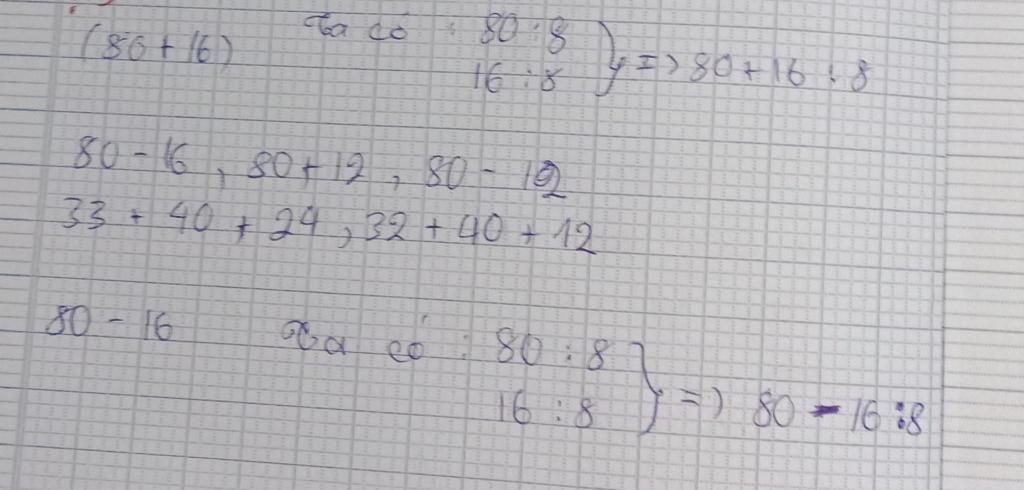 (80 + 16) Ta có : 80 : 8
16 : 8 } => 80 + 16 : 8
80 - 16, 80 + 12, 80 - 12
33 + 40 + 24, 32 + 40 + 12
80 - 16 Ta có : 80 : 8
16 : 8 } => 80 - 16 : 8